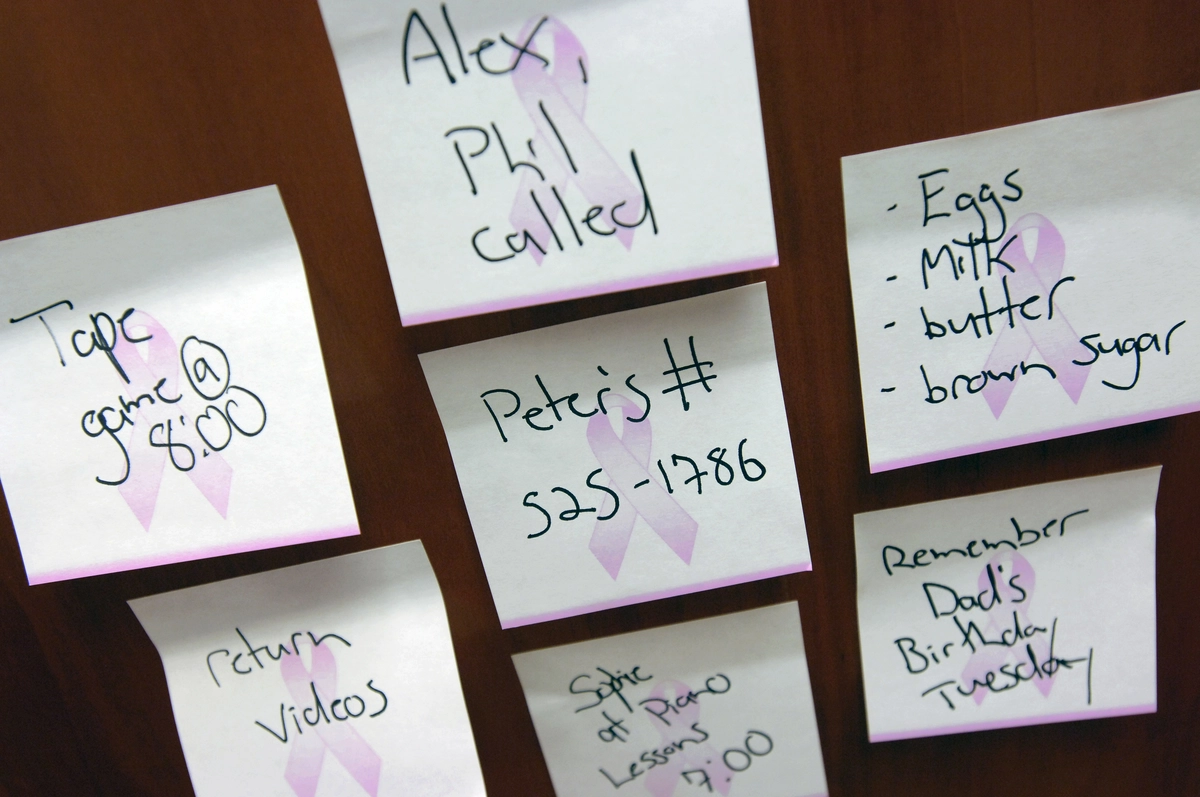 Alex,
Phil
called
Tape
game @
8:00
Peter's #
525-1786
- Eggs
- Milk
- butter
- brown sugar
return
videos
Sophie
at Piano
Lessons
7:00
Remember
Dad's
Birthday
Tuesday